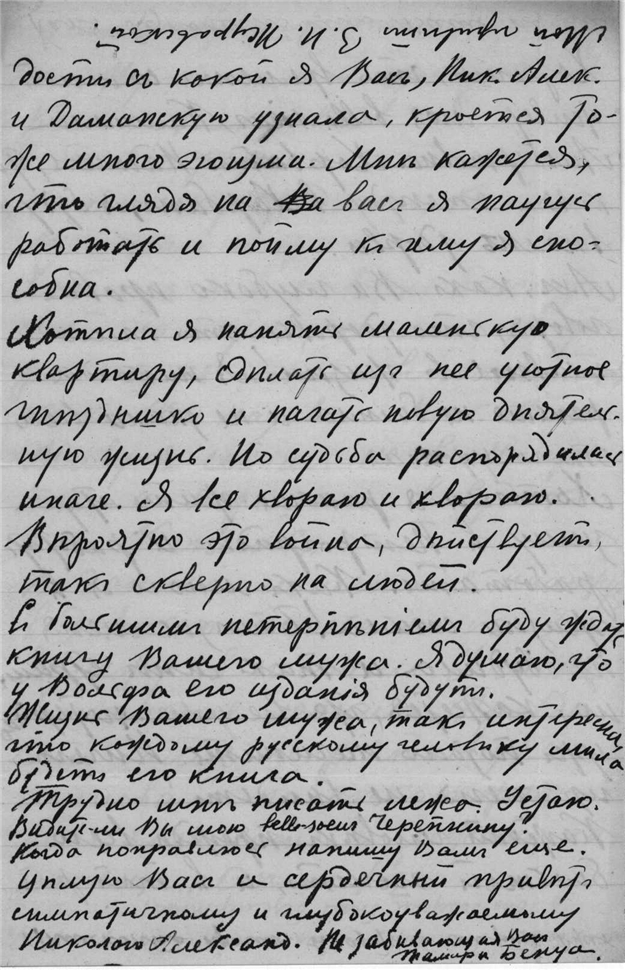 Мой привѣтъ З. И. Журавской.
дости съ какой я Васъ, Ник. Алек.
и Даманскую узнала, кроется то-
же много эгоизма. Мнѣ кажется,
что глядя на Ва васъ я научусь
работать и пойму къ чему я спо-
собна.
Хотѣла я нанять маленькую
квартиру, сдѣлать изъ нее уютное
гнѣздышко и начать новую дѣятель-
ную жизнь. Но судьба распорядилась
иначе. Я все хвораю и хвораю.
Вѣроятно это война, дѣйствуетъ,
такъ скверно на людей.
Съ большимъ нетерпѣніемъ буду ждать
книгу Вашего мужа. Я думаю, что
у Вольфа его изданія будутъ.
Жизнь Вашего мужа, такъ интересна,
что каждому русскому человѣку мила
будетъ его книга.
Трудно мнѣ писать лежа. Устаю.
Видите-ли Вы мою belle-soeur Черепнину?
Когда поправлюсь напишу Вамъ еще.
Цѣлую Васъ и сердечный привѣтъ
симпатичному и глубокоуважаемому
Николаю Александ. Не забывающая Васъ
Тамара Бенуа.